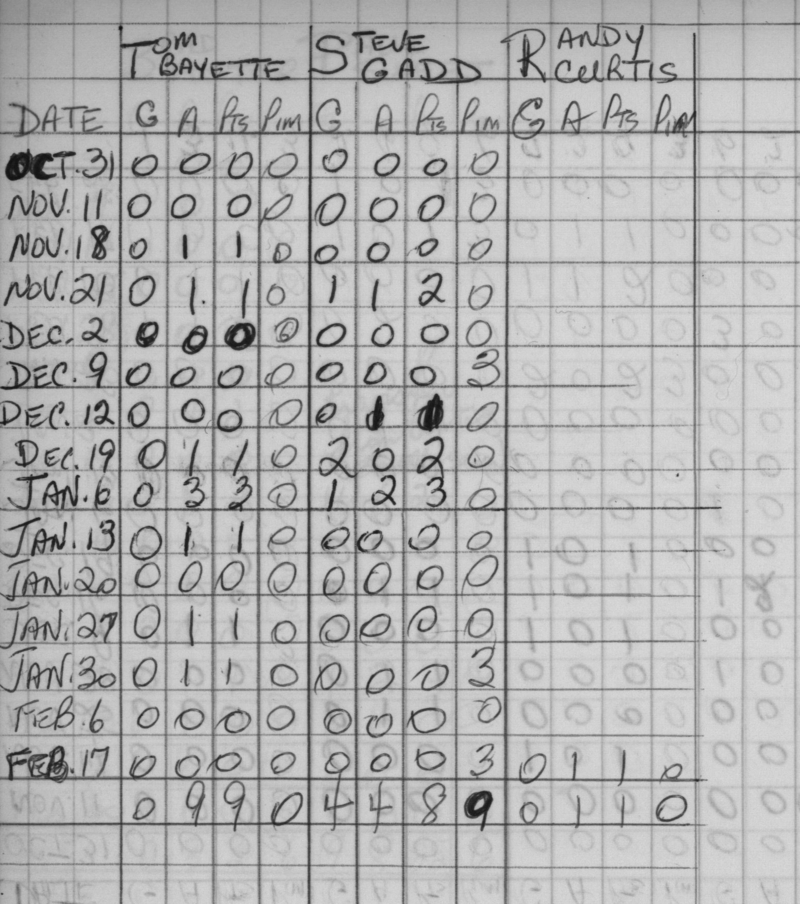 TOM BAYETTE STEVE GADD RANDY CURTIS
DATE G A PTS PIM G A PTS PIM G A PTS PIM
OCT. 31 0 0 0 0 0 0 0 0
NOV. 11 0 0 0 0 0 0 0 0
NOV. 18 0 1 1 0 0 0 0 0
NOV. 21 0 1 1 0 1 1 2 0
DEC. 2 0 0 0 0 0 0 0 0
DEC. 9 0 0 0 0 0 0 0 3
DEC. 12 0 0 0 0 0 1 1 0
DEC. 19 0 1 1 0 2 0 2 0
JAN. 6 0 3 3 0 1 2 3 0
JAN. 13 0 1 1 0 0 0 0 0
JAN. 20 0 0 0 0 0 0 0 0
JAN. 27 0 1 1 0 0 0 0 0
JAN. 30 0 1 1 0 0 0 0 3
FEB. 6 0 0 0 0 0 0 0 0
FEB. 17 0 0 0 0 0 0 0 3 0 1 1 0
0 9 9 0 4 4 8 9 0 1 1 0